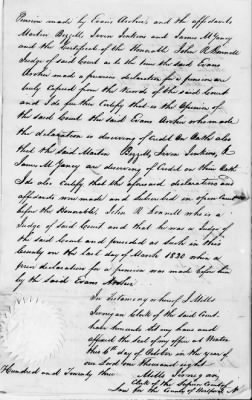 Pension made by Evans Archer and the affidavits
Martin Bizzell, Irvin Jenkins and James M Yancy
and the Certificate of the Honorable John R Donnell
Judge of said Court as to the time the said Evans
Archer made a previous declaration for a pension are
truly Copied from the records of the said Court
and I do further Certify that in the Opinion of
said Court the said Evans Archer who made
the declaration is deserving of Credit on Oath also
that the said Martin Bizzell, Irvin Jenkins, &
James M Yancy are deserving of Credit on their Oath
I do also Certify that the aforesaid declarations and
affidavits were made and subscribed in open Court
before the Honorable John R Donnell who is a
Judge of said Court and that he was a Judge of
the said Court and presided as such in this
County on the last day of March 1830 when a
prior declaration for a pension was made before him
by the said Evans Archer
In testimony whereof I Mills
Clerk of the said Court
have hereunto set my hand and
affixed the seal of my office at
this 6th day of October in the year of
our Lord one thousand eight
Hundred and Twenty three
Mills
Clerk of the Superior Court of
Law for the County of Hertford N